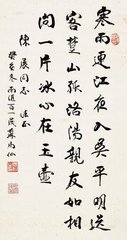 寒雨連江夜入吳平明送
客楚山孤洛陽親友如相
問一片冰心在玉壺
陳展同志 正
癸亥冬南百一蘇局仙